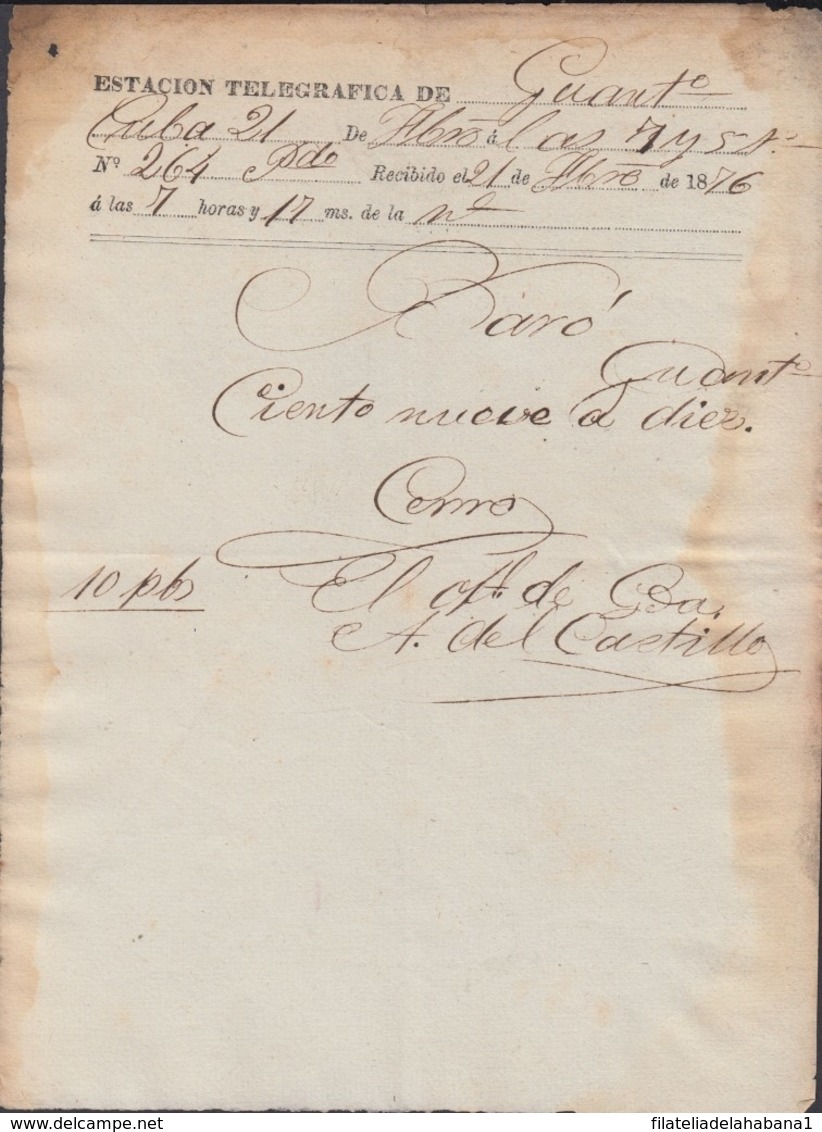 ESTACION TELEGRAFICA DE Guant⁰
Cuba 21 De Fbrō á las 7 y 5
Nº 264 Pdo Recibido el 21 de Fbrō de 1876
á las 7 horas y 17 ms. de la n⁰
Baró
Guant⁰
Ciento nueve a diez.
Cerro
10 pbs El ofl. de Gda.
A. del Castillo
filateliadelahabana1